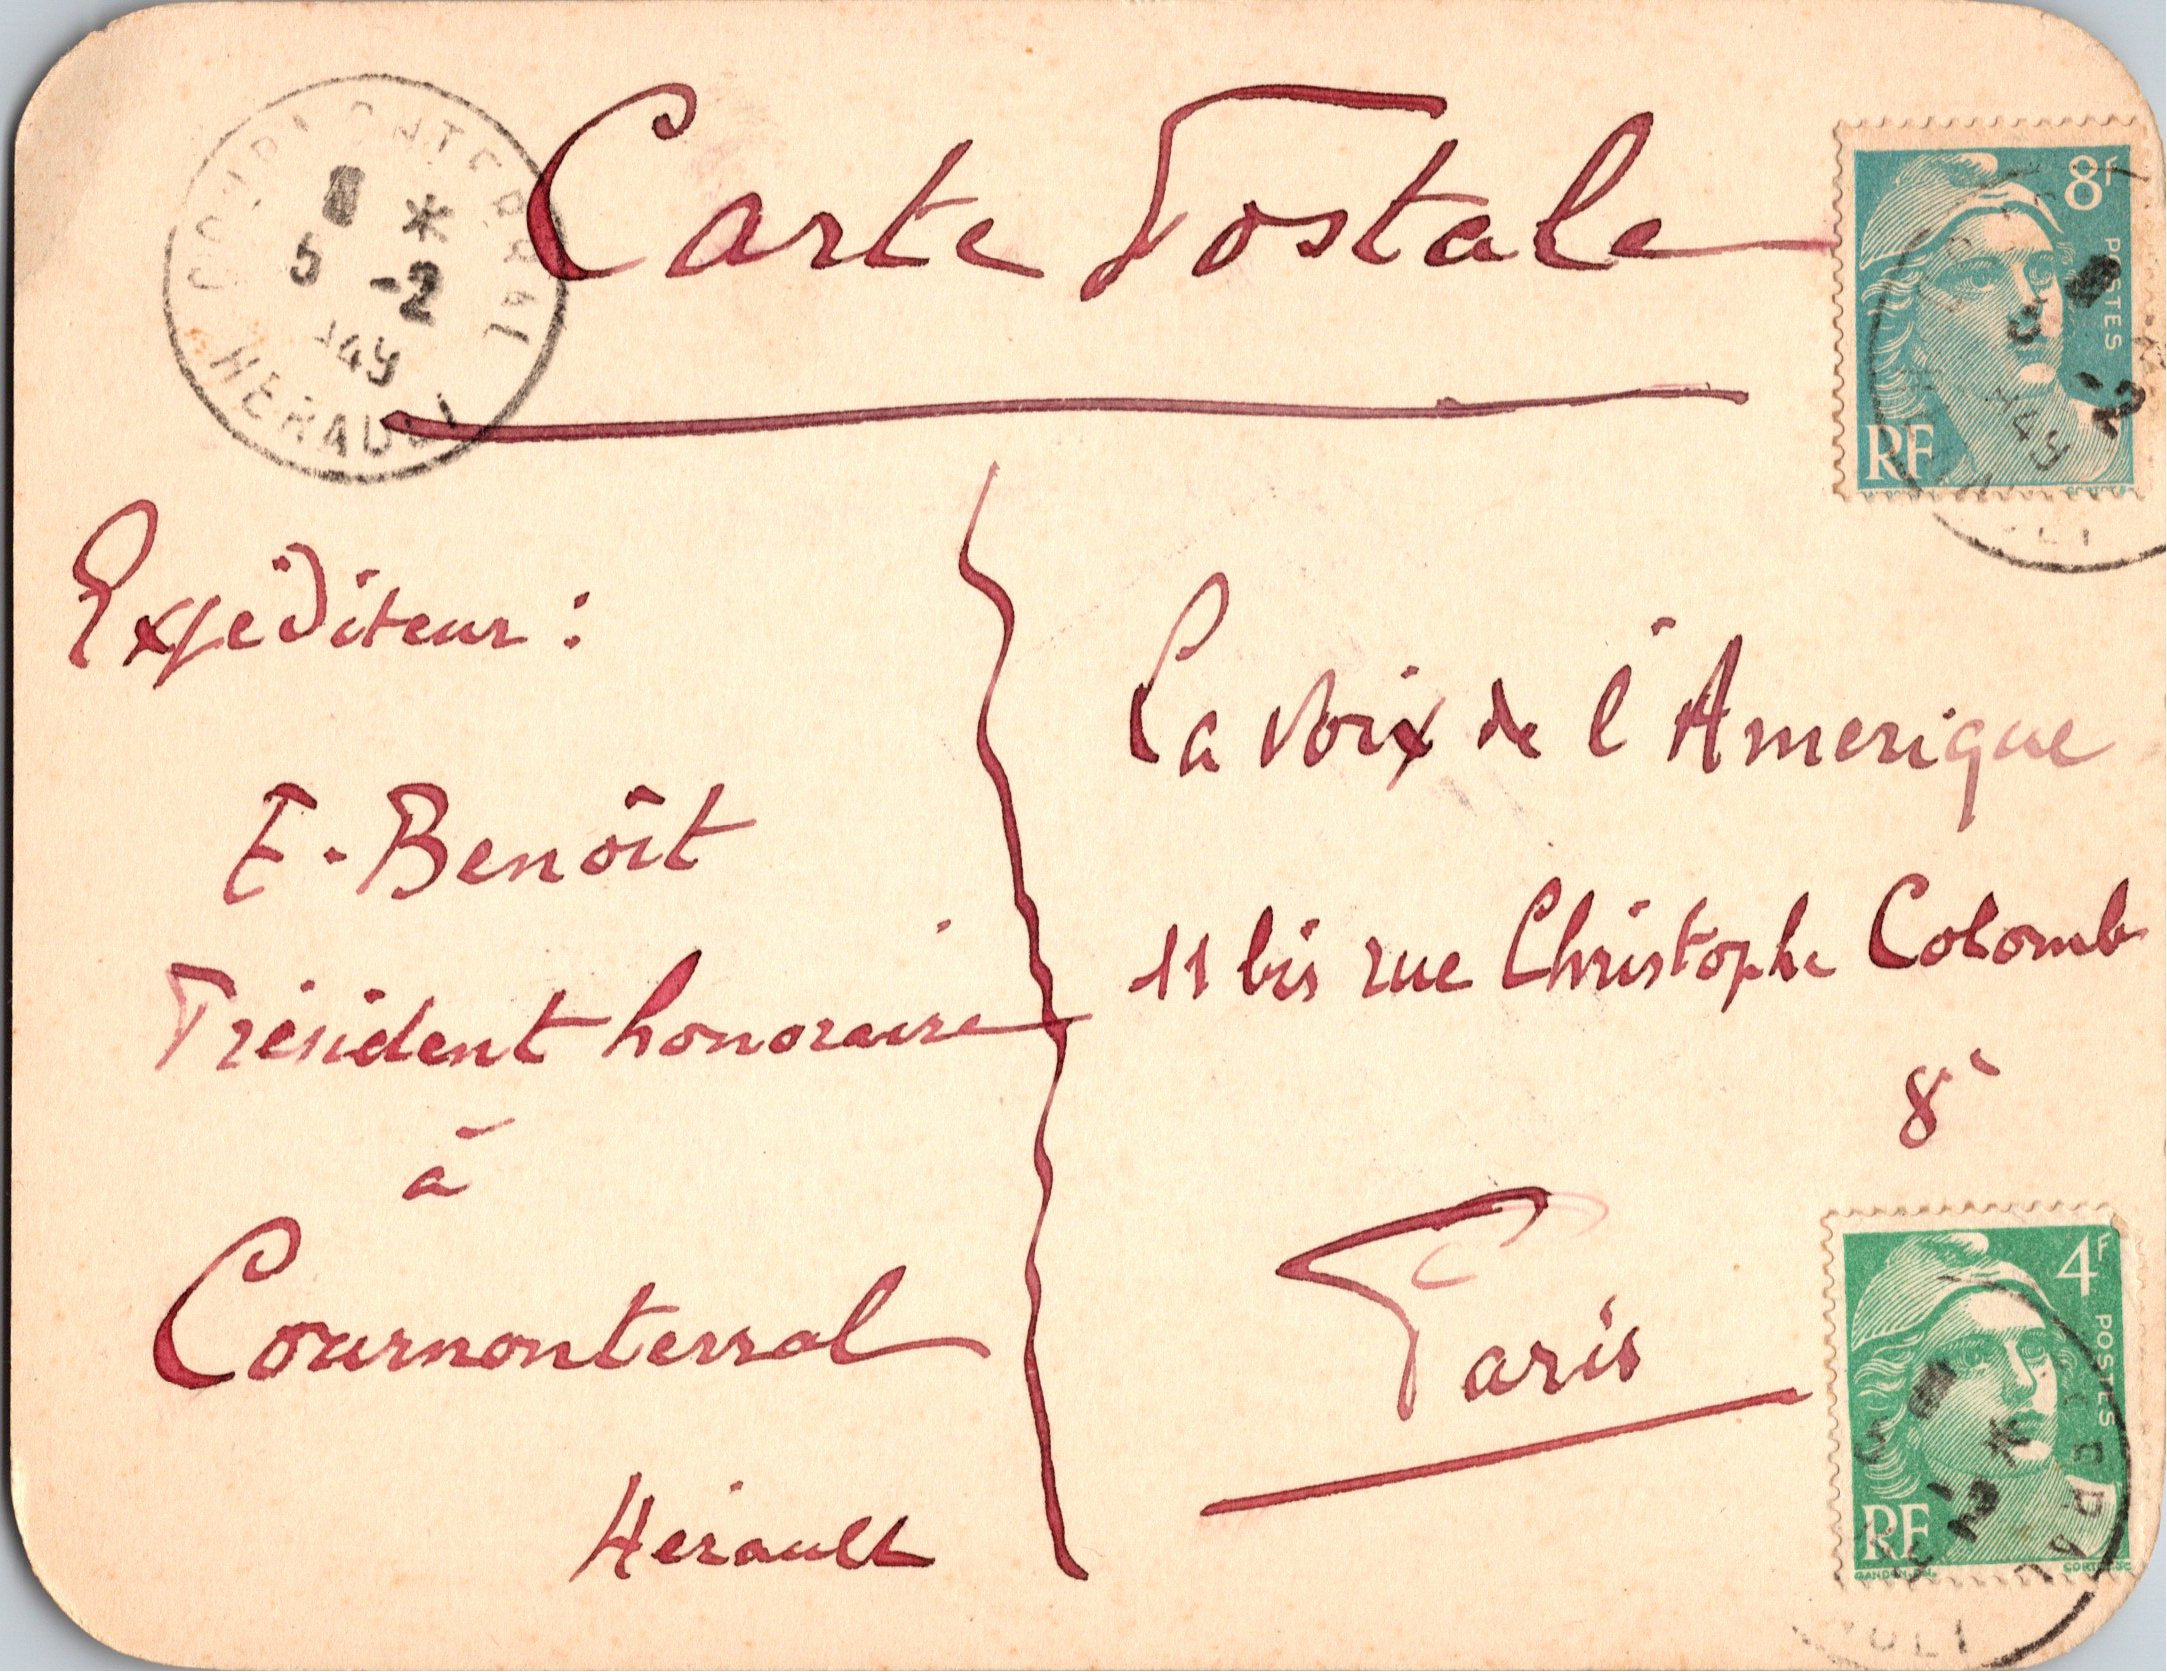 Carte Postale
COURNONTERRAL
5 -2
49
HERAULT
8F
POSTES
RF
Expéditeur :
E. Benoît
Président honoraire
à
Cournonterral
Hérault
La Voix de l'Amerique
11 bis rue Christophe Colomb
8e
Paris
4F
POSTES
RF
GANDON